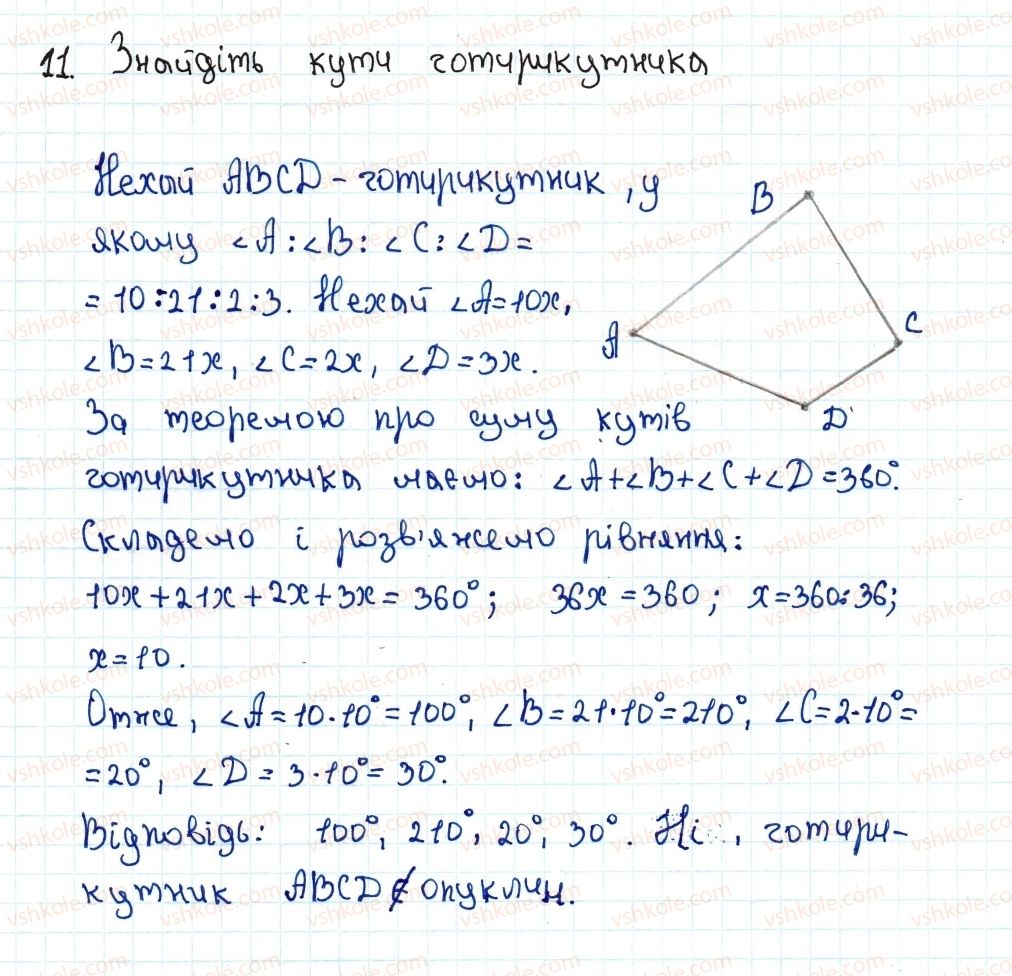 11. Знайдіть кути чотирикутника
Нехай ABCD – чотирикутник, у
якому ∠A:∠B:∠C:∠D=
=10:21:2:3. Нехай ∠A=10x,
∠B=21x, ∠C=2x, ∠D=3x.
B
A
C
D
За теоремою про суму кутів
чотирикутника маємо: ∠A+∠B+∠C+∠D=360°.
Складемо і розв'яжемо рівняння:
10x+21x+2x+3x=360°; 36x=360; x=360:36;
x=10.
Отже, ∠A=10·10°=100°, ∠B=21·10°=210°, ∠C=2·10°=
=20°, ∠D=3·10°=30°.
Відповідь: 100°, 210°, 20°, 30°. Ні, чотири-
кутник ABCD опуклин.
vshkole.com